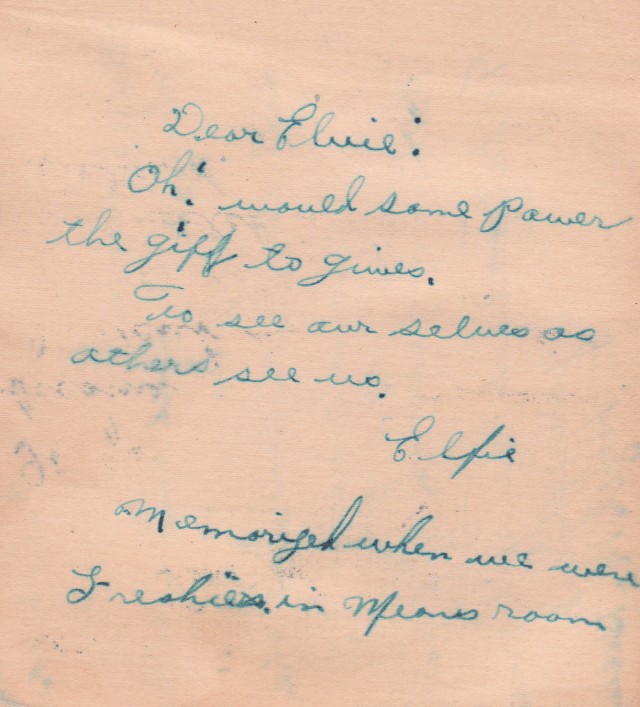 Dear Elvie:
Oh! would some power
the gift to gives.
To see our selves as
others see us.
Elfie
Memorized when we were
Freshies. in Means room